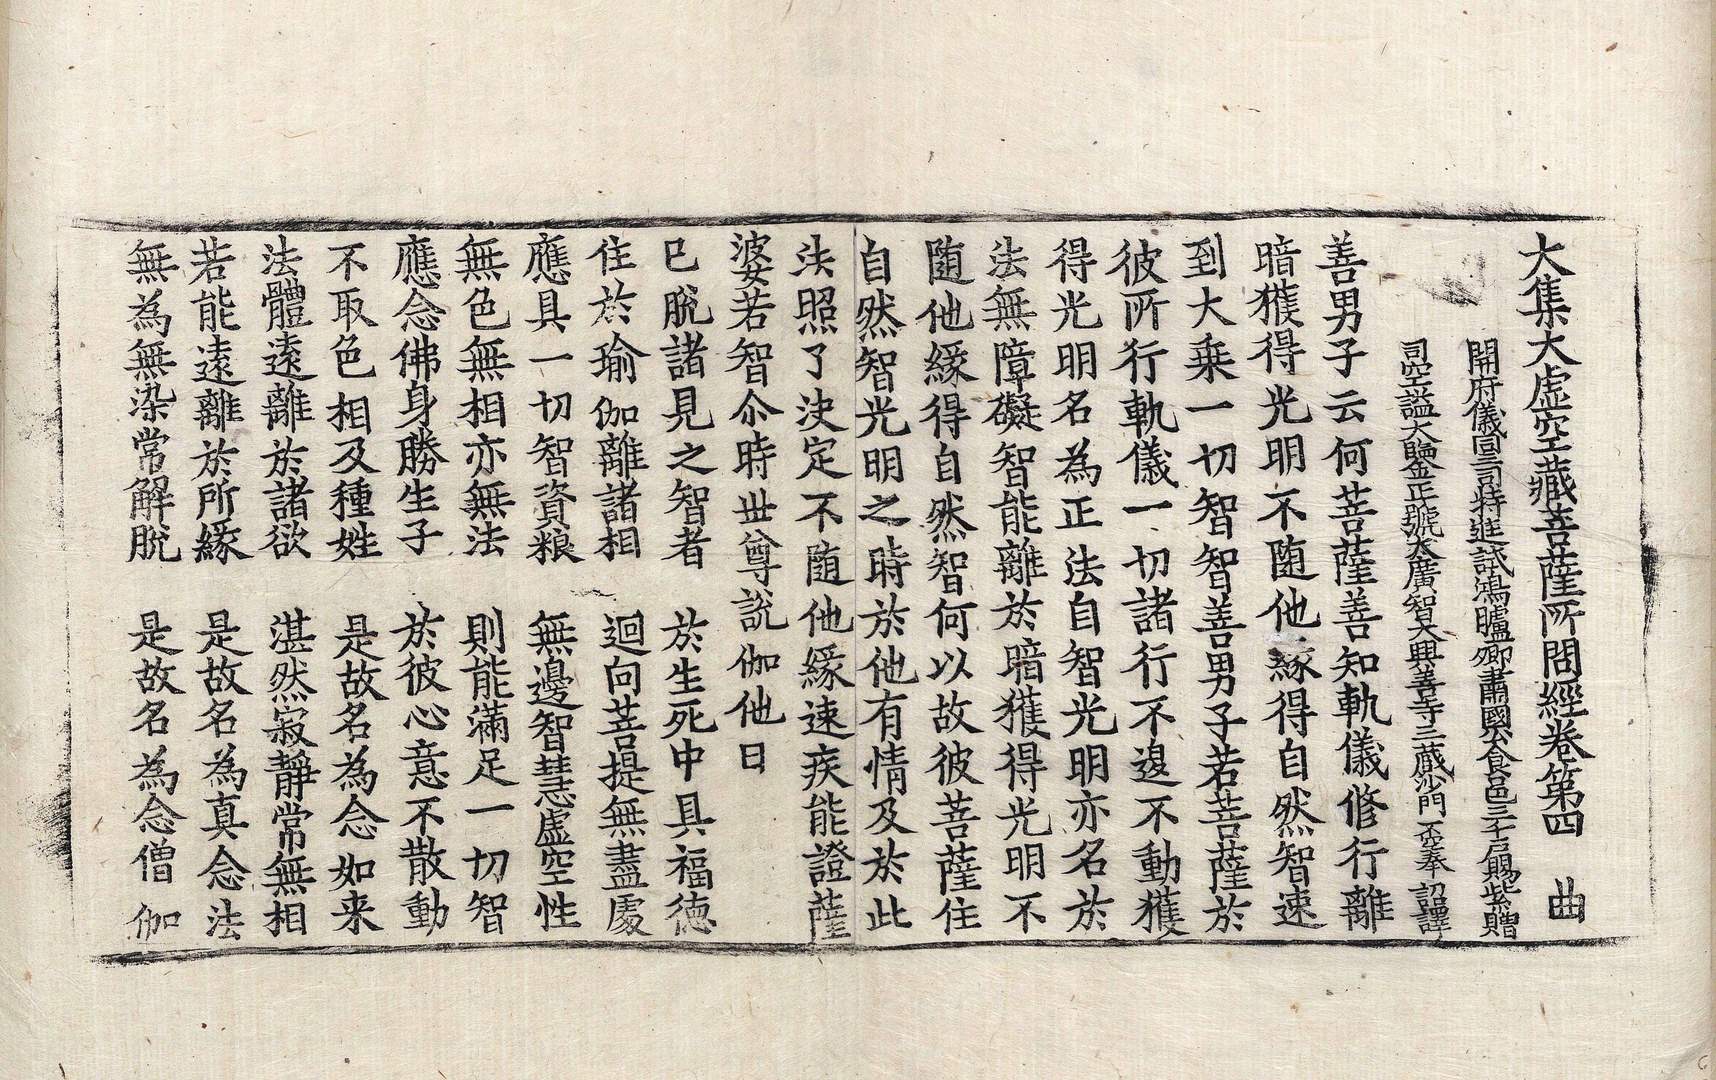 大集大虛空藏菩薩所問經卷第四　曲
開府儀同三司特進試鴻臚卿肅國公食邑三千戶賜紫贈
司空謚大鑒正號大廣智大興善寺三藏沙門不空奉　詔譯
善男子云何菩薩善知軌儀修行離
暗獲得光明不随他緣得自然智速
到大乘一切智智善男子若菩薩於
彼所行軌儀一切諸行不退不動獲
得光明名為正法自智光明亦名於
法無障礙智能離於暗獲得光明不
随他緣得自然智何以故彼菩薩住
自然智光明之時於他有情及於此
法照了決定不随他緣速疾能證薩
婆若智尒時世尊說伽他曰
已脫諸見之智者　於生死中具福德
住於瑜伽離諸相　迴向菩提無盡處
應具一切智資粮　無邊智慧虛空性
無色無相亦無法　則能滿足一切智
應念佛身勝生子　於彼心意不散動
不取色相及種姓　是故名為念如来
法體遠離於諸欲　湛然寂靜常無相
若能遠離於所緣　是故名為真念法
無為無染常解脫　是故名為念僧伽